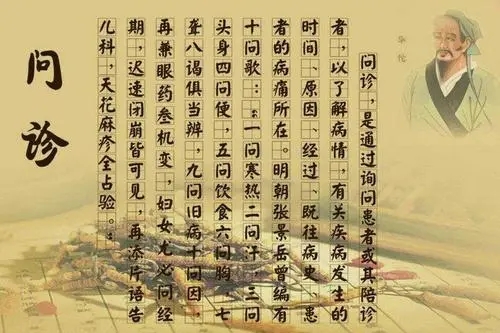 问诊
问诊，是通过询问患者或其陪诊
者，以了解病情，有关疾病发生的
时间、原因、经过、既往病史、患
者的病痛所在。明朝张景岳曾编有
十问歌：“一问寒热二问汗，三问
头身四问便，五问饮食六问胸，七
聋八渴俱当辨，九问旧病十问因，
再兼服药参机变，妇女尤必问经
期，迟速闭崩皆可见，再添片语告
儿科，天花麻疹全占验。”
华佗